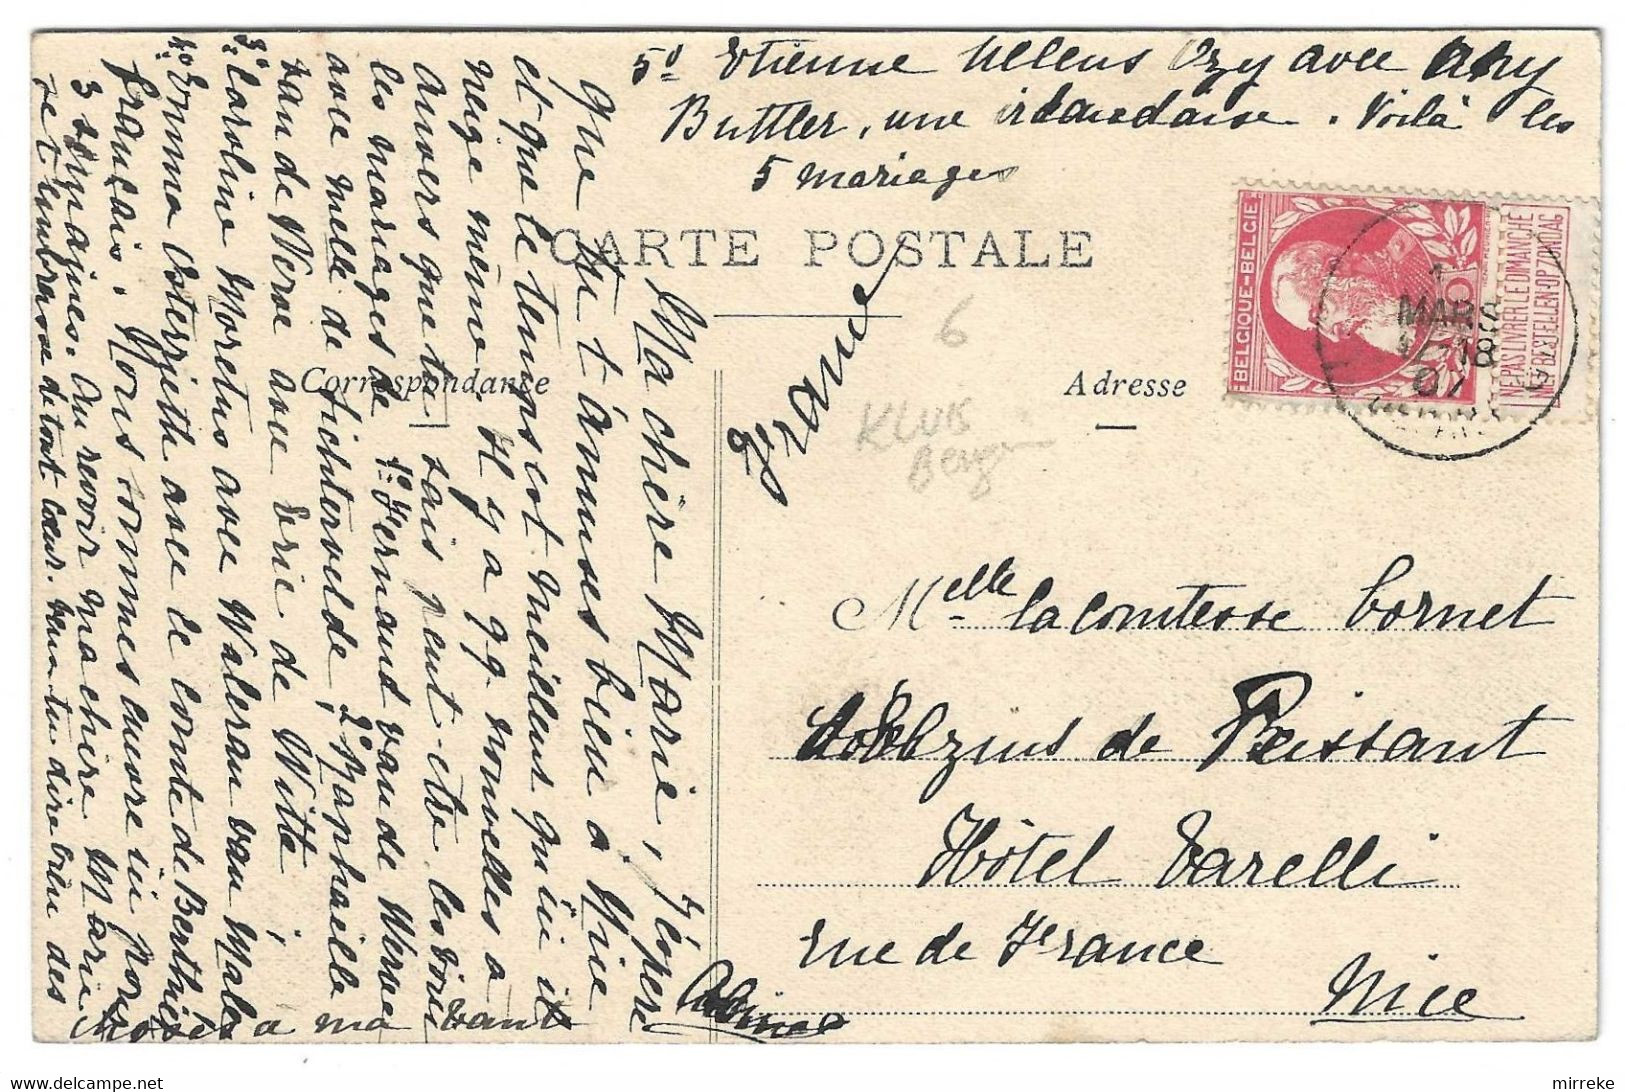 5° Etienne Ullens Ozy avec
Buttler, une irlandaise. Voilà les
5 mariages
CARTE POSTALE
Correspondance
Adresse
6
KLUIS
Berge
France
BELGIQUE-BELGIE
10
NE PAS LIVRER LE DIMANCHE
NIET BESTELLEN OP ZONDAG
1
MARS
18
07
Melle la Comtesse Cornet
de Peissant
Hôtel Varelli
rue de France
Nice
Ma chère Marie, J'espère
que tu t'amuses bien à Nice
et que le temps est meilleur qu'ici il
neige même. Il y a qq nouvelles à
Anvers que tu sais peut-être. les voici
les mariages de 1° Fernand van de Werve
avec Melle de Lichtervelde, 2° Raphaëlle
van de Werve avec Eric de Witte;
3° Caroline Moretus avec Waleran van
4° Emma Osterrieth avec le Comte de
français. Nous sommes encore ici pour
3 semaines. Au revoir ma chère Marie
je t'embrasse de tout cœur. Veux-tu dire bien des
choses à ma tante